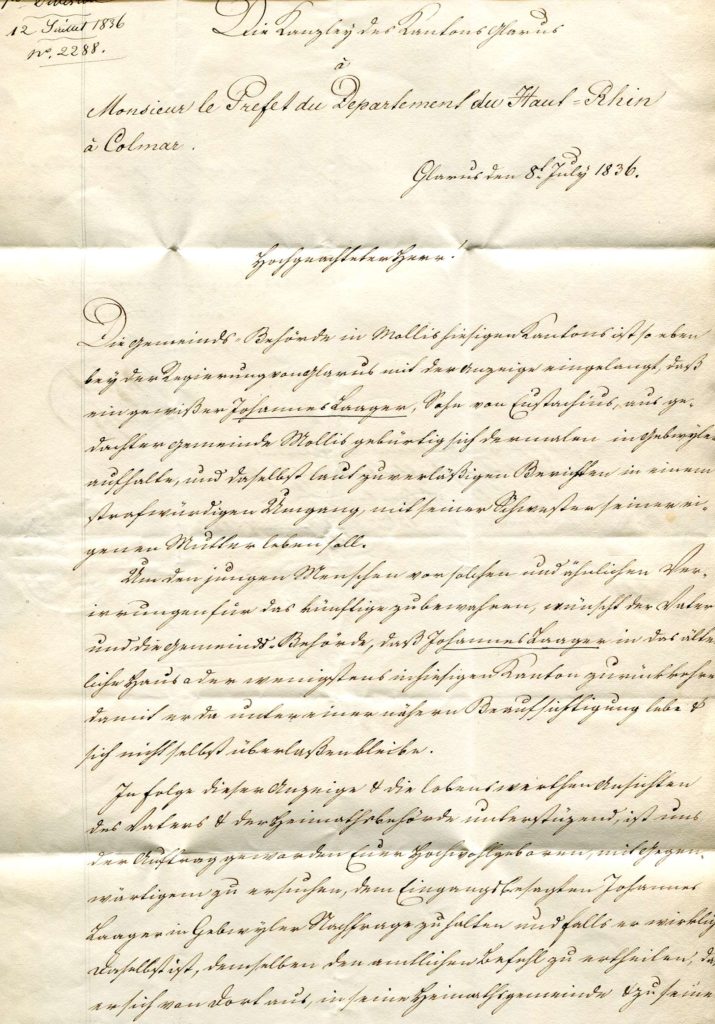 12 Juillet 1836
N.º 2288.
Die Kanzley des Kantons Glarus
à
Monsieur le Prefet du Departement du Haut-Rhin
à Colmar.
Glarus den 8.t July 1836.
Hochgeachteter Herr!
Die Gemeinds-Behörde in Mollis hiesigen Kantons ist so eben
bey der Regierung von Glarus mit der Anzeige eingelangt, daß
ein gewißer Johannes Laager, Sohn von Eustachius, aus ge-
dachter Gemeinde Mollis gebürtig sich dermalen in Gebwyler
aufhalte, und daselbst laut zuverläßigen Berichten in einem
strafwürdigen Umgang mit seiner Schwester seiner ei-
genen Mutter leben soll.
Um den jungen Menschen vor solchen und ähnlichen Ver-
irrungen für das künftige zu bewahren, wünscht der Vater
und die Gemeinds-Behörde, daß Johannes Laager in das älte-
liche Haus oder wenigstens in hiesigen Kanton zurückkehre
damit er da unter einer nähern Beaufsichtigung lebe &
sich nicht selbst überlaßen bleibe.
In Folge dieser Anzeige & die lobenswerthen Ansichten
des Vaters & der Heimathsbehörde unterstüzend, ist uns
der Auftrag geworden Euer Hochwohlgeboren, mit Gegen-
wärtigem zu ersuchen, dem Eingangs besagten Johannes
Laager in Gebwyler Nachfrage zu halten und falls er wirklich
daselbst ist, demselben den amtlichen Befehl zu ertheilen, da
er sich von dort aus, in seine Heimathsgemeinde & zu seine